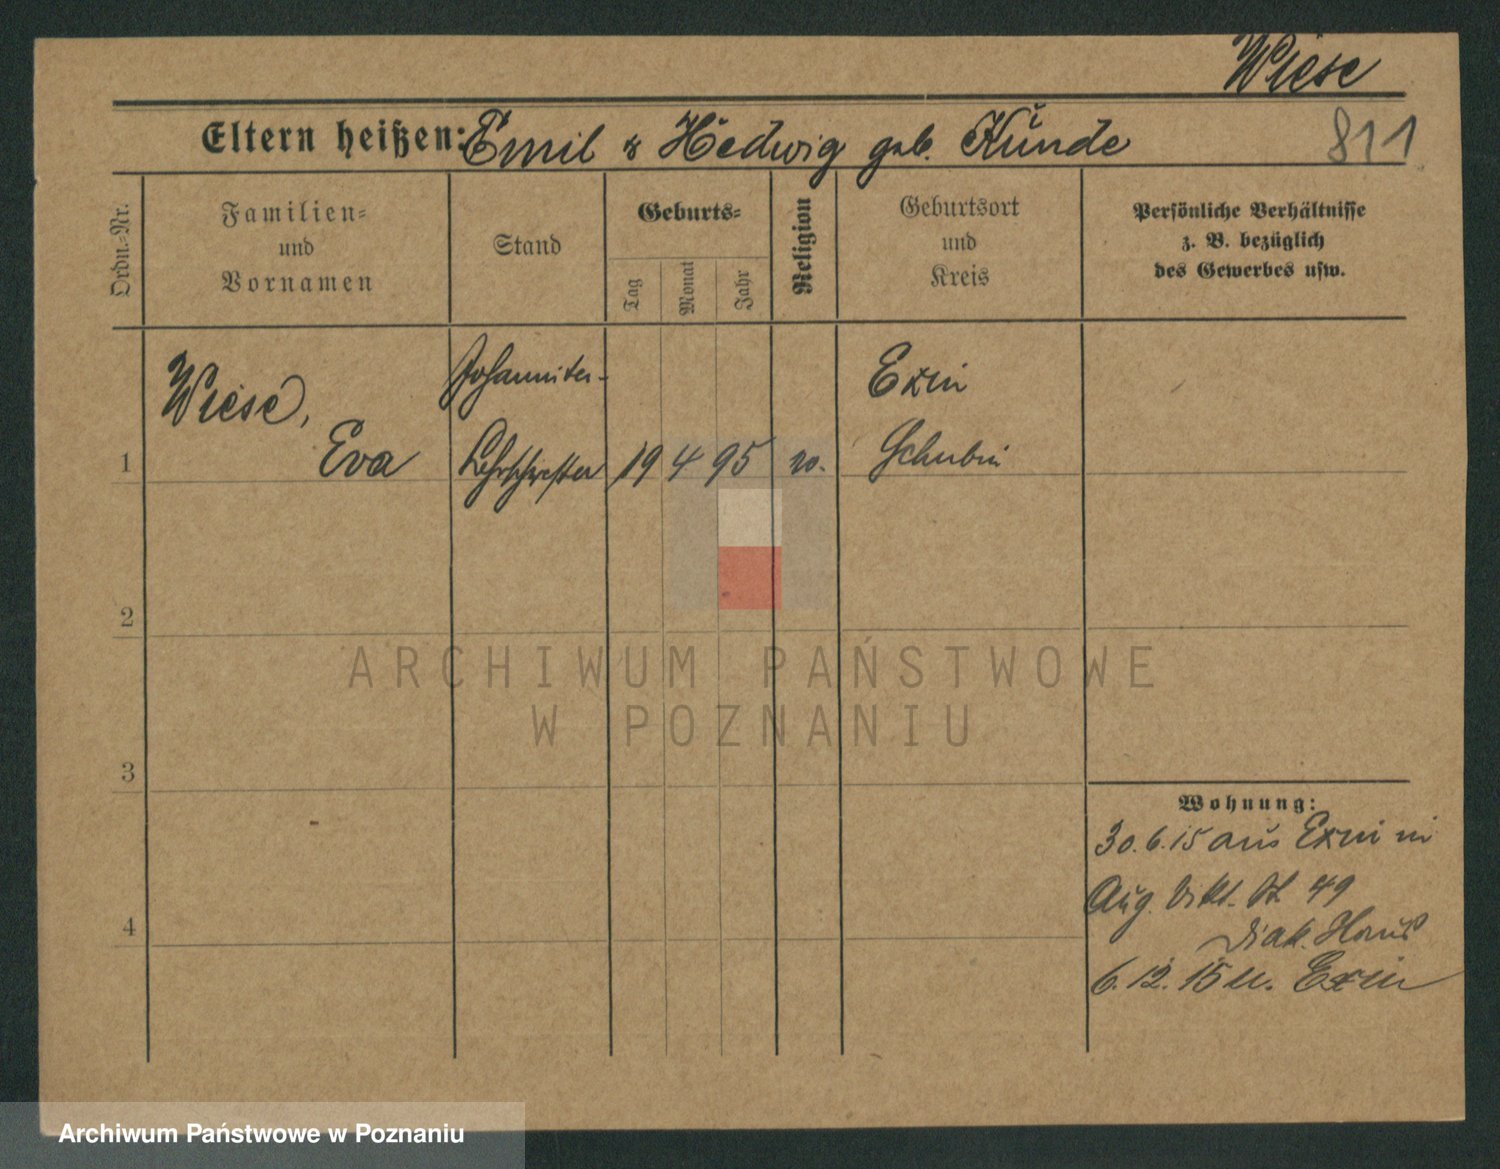 Wiese
Eltern heißen: Emil & Hedwig geb. Kunde
811
Ordn.-Nr.
Familien-
und
Vornamen
Stand
Geburts-
Tag
Monat
Jahr
Religion
Geburtsort
und
Kreis
Persönliche Verhältnisse
z. B. bezüglich
des Gewerbes usw.
Wiese,
Eva
Johanniter-
Lehrschwester
1
19 4 95
Exin
Schubin
2
3
4
Wohnung:
30.6.15 aus Exin in
Aug. Vikt. St. 49
Diak. Haus
6.12.15 n. Exin
ARCHIWUM PAŃSTWOWE
W POZNANIU
Archiwum Państwowe w Poznaniu